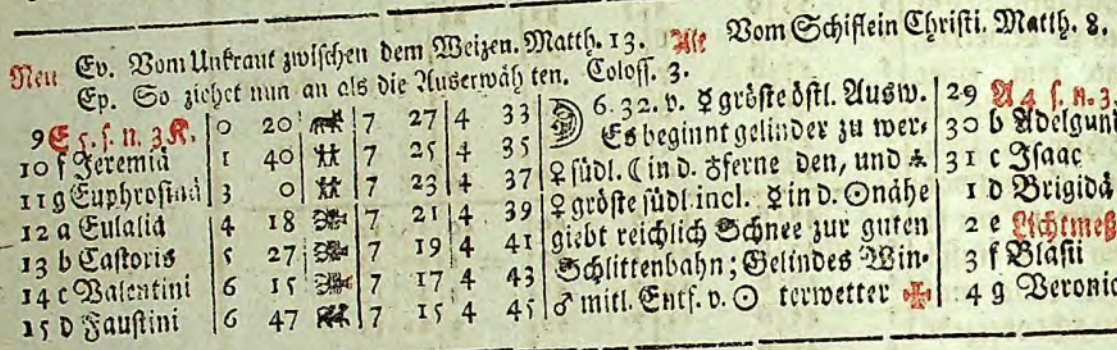 Neu Ev. Vom Unkraut zwischen dem Weizen. Matth. 13. Alt Vom Schiflein Christi. Matth. 8.
Ep. So ziehet nun an als die Auserwäh ten. Coloss. 3.
9 E 5. s. n. 3 K. 0 20 7 27 4 33 6. 32. v. ☿ gröste östl. Ausw. 29 A 4 s. n. 3
10 f Jeremiä 1 40 7 25 4 35 Es beginnt gelinder zu wer- 30 b Adelgund
11 g Euphrosinä 3 0 7 23 4 37 ♀ südl. ☾ in d. ♁ferne den, und 31 c Isaac
12 a Eulaliä 4 18 7 21 4 39 ♀ gröste südl. incl. ☿ in d. ☉nähe 1 d Brigidä
13 b Castoris 5 27 7 19 4 41 giebt reichlich Schnee zur guten 2 e Lichtmeß
14 c Valentini 6 15 7 17 4 43 Schlittenbahn; Gelindes Win- 3 f Blásii
15 d Faustini 6 47 7 15 4 45 ♂ mitl. Entf. v. ☉ terwetter 4 g Veronic